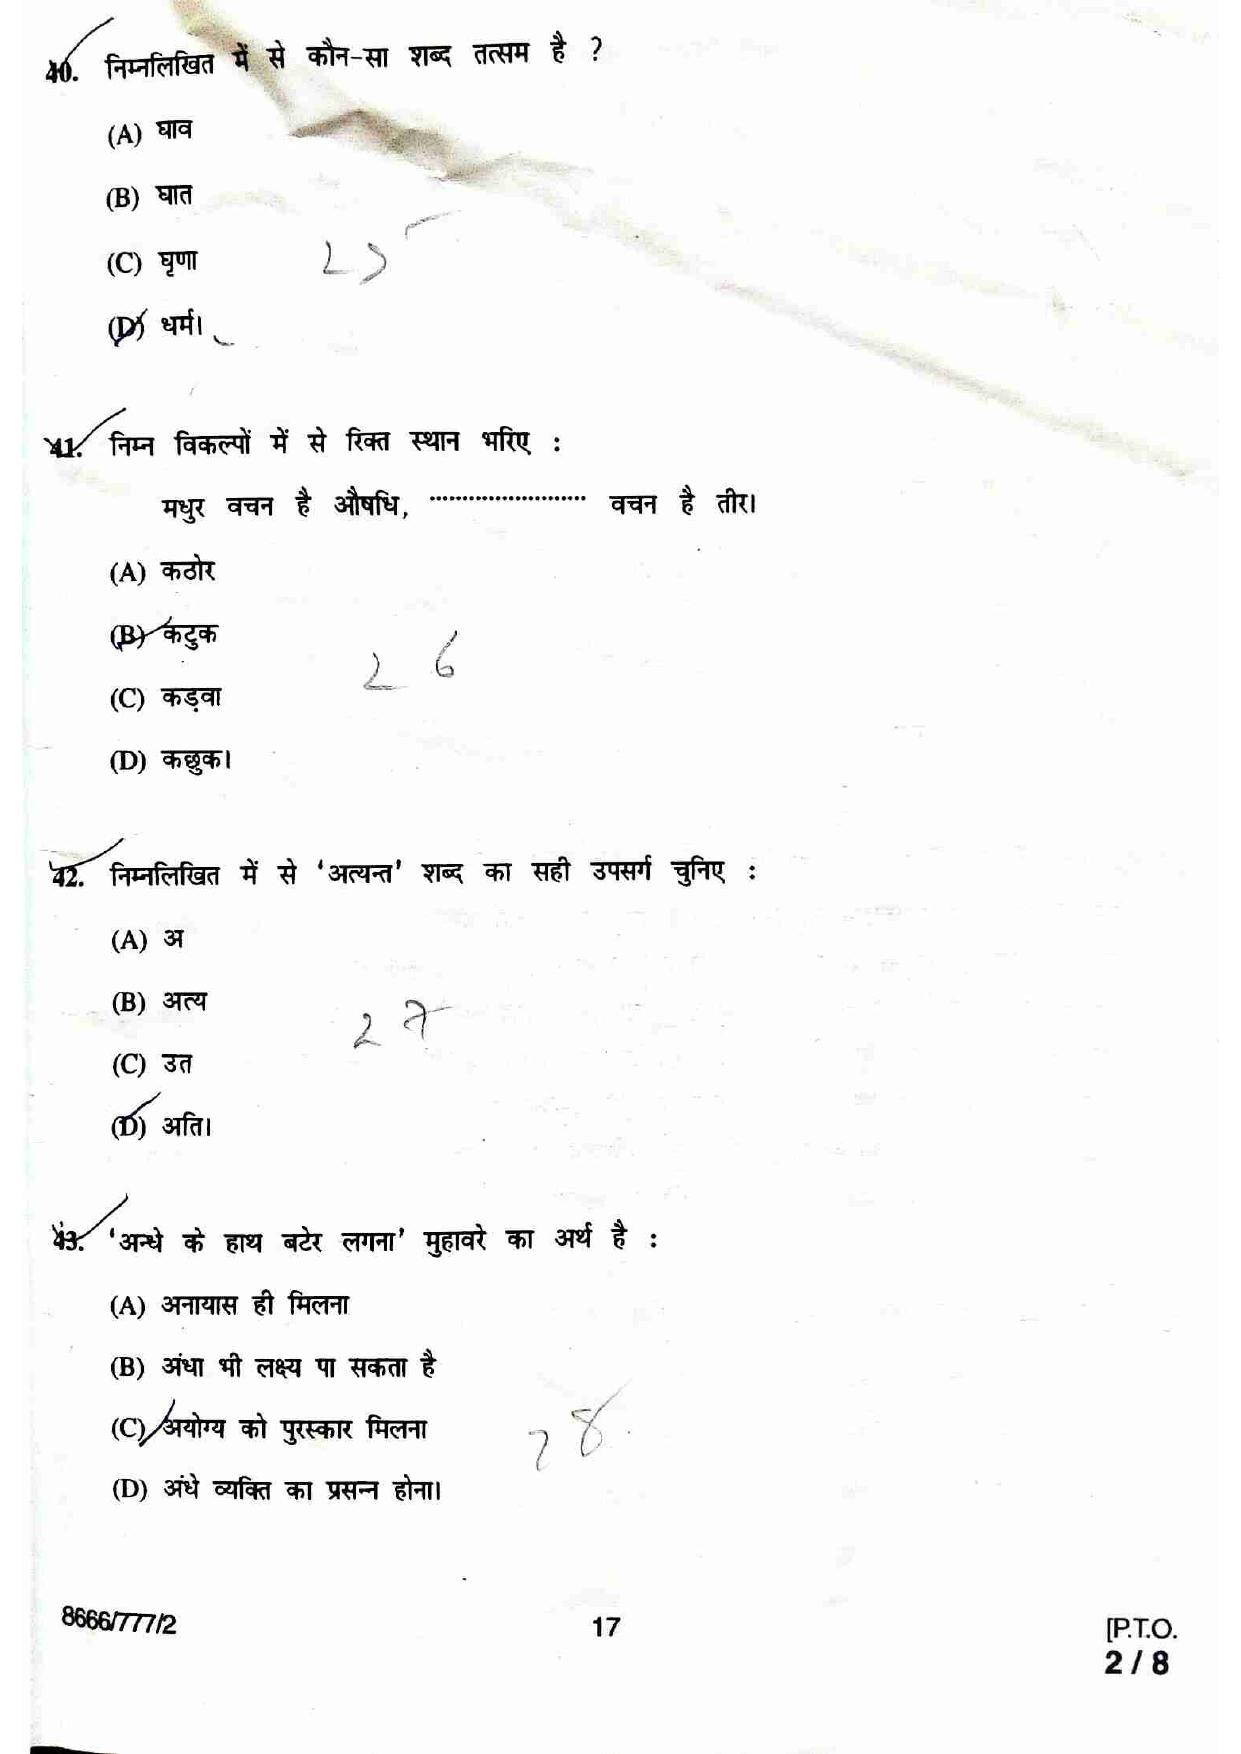 40. निम्नलिखित में से कौन-सा शब्द तत्सम है ?
(A) घाव
(B) घात
(C) घृणा
25
(D) धर्म।
41. निम्न विकल्पों में से रिक्त स्थान भरिए :
मधुर वचन है औषधि, ........................ वचन है तीर।
(A) कठोर
(B) कटुक
26
(C) कड़वा
(D) कछुक।
42. निम्नलिखित में से ‘अत्यन्त’ शब्द का सही उपसर्ग चुनिए :
(A) अ
(B) अत्य
27
(C) उत
(D) अति।
43. ‘अन्धे के हाथ बटेर लगना’ मुहावरे का अर्थ है :
(A) अनायास ही मिलना
(B) अंधा भी लक्ष्य पा सकता है
(C) अयोग्य को पुरस्कार मिलना
28
(D) अंधे व्यक्ति का प्रसन्न होना।
8666/777/2 17 [P.T.O.
2 / 8